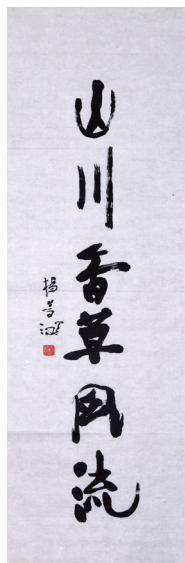 山川香草風流
楊善深